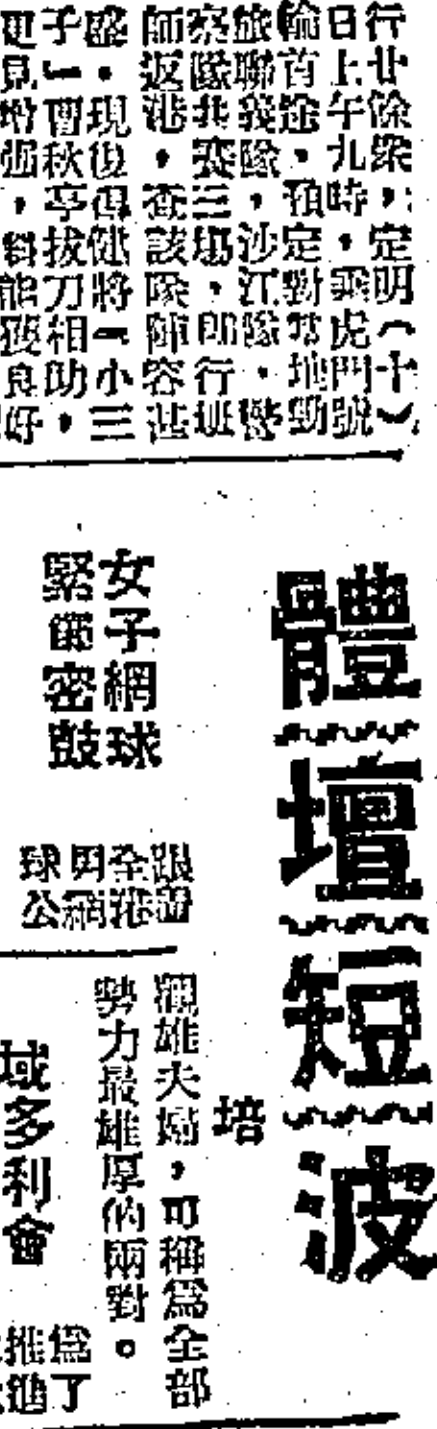 行廿餘衆，定明（十）
日上午九時，乘虎門號
輪首途，預定對常地勁
旅聯義隊，沙江隊，警
察隊共賽三場，即行班
師返港，查該隊陣容甚
盛，現復得健將一小三
子一曹秋亭拔刀相助，
更見增強，料能獲良好
體壇短波
女子網球
緊鑼密鼓
跟着
全港
男網
球公
培
觀雄夫婦，可稱爲全部
勢力最雄厚的兩對。
域多利會
爲了
推進